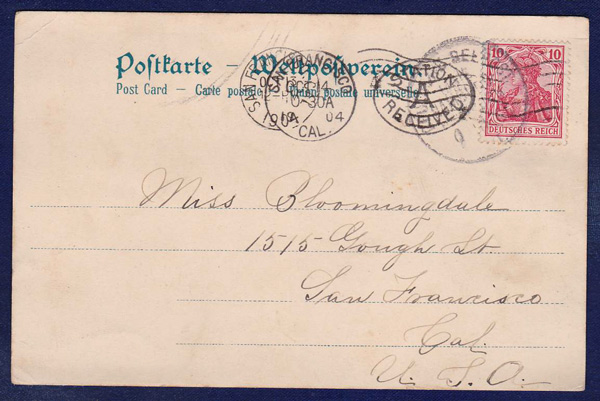 Postkarte – Weltpostverein
Post Card – Carte postale union postale universelle
SAN FRANCISCO
10-30A
1904
04
CAL.
STATION
A
RECEIVED
10 10
DEUTSCHES REICH
Miss Bloomingdale
1515 Gough St.
San Francisco
Cal.
U. S. A.